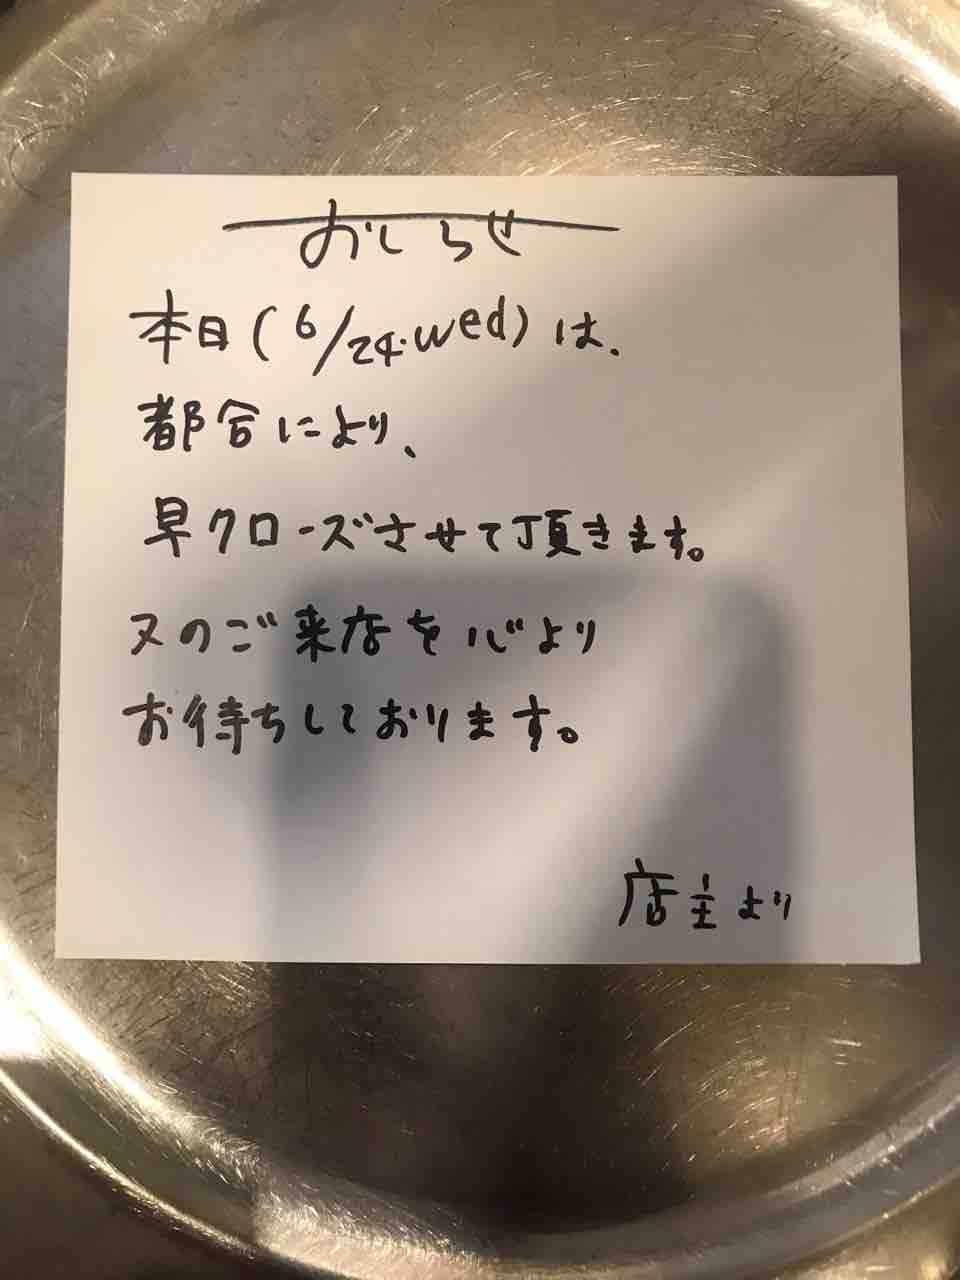 おしらせ
本日(6/24.wed)は、
都合により、
早クローズさせて頂きます。
又のご来店を心より
お待ちしております。
店主より